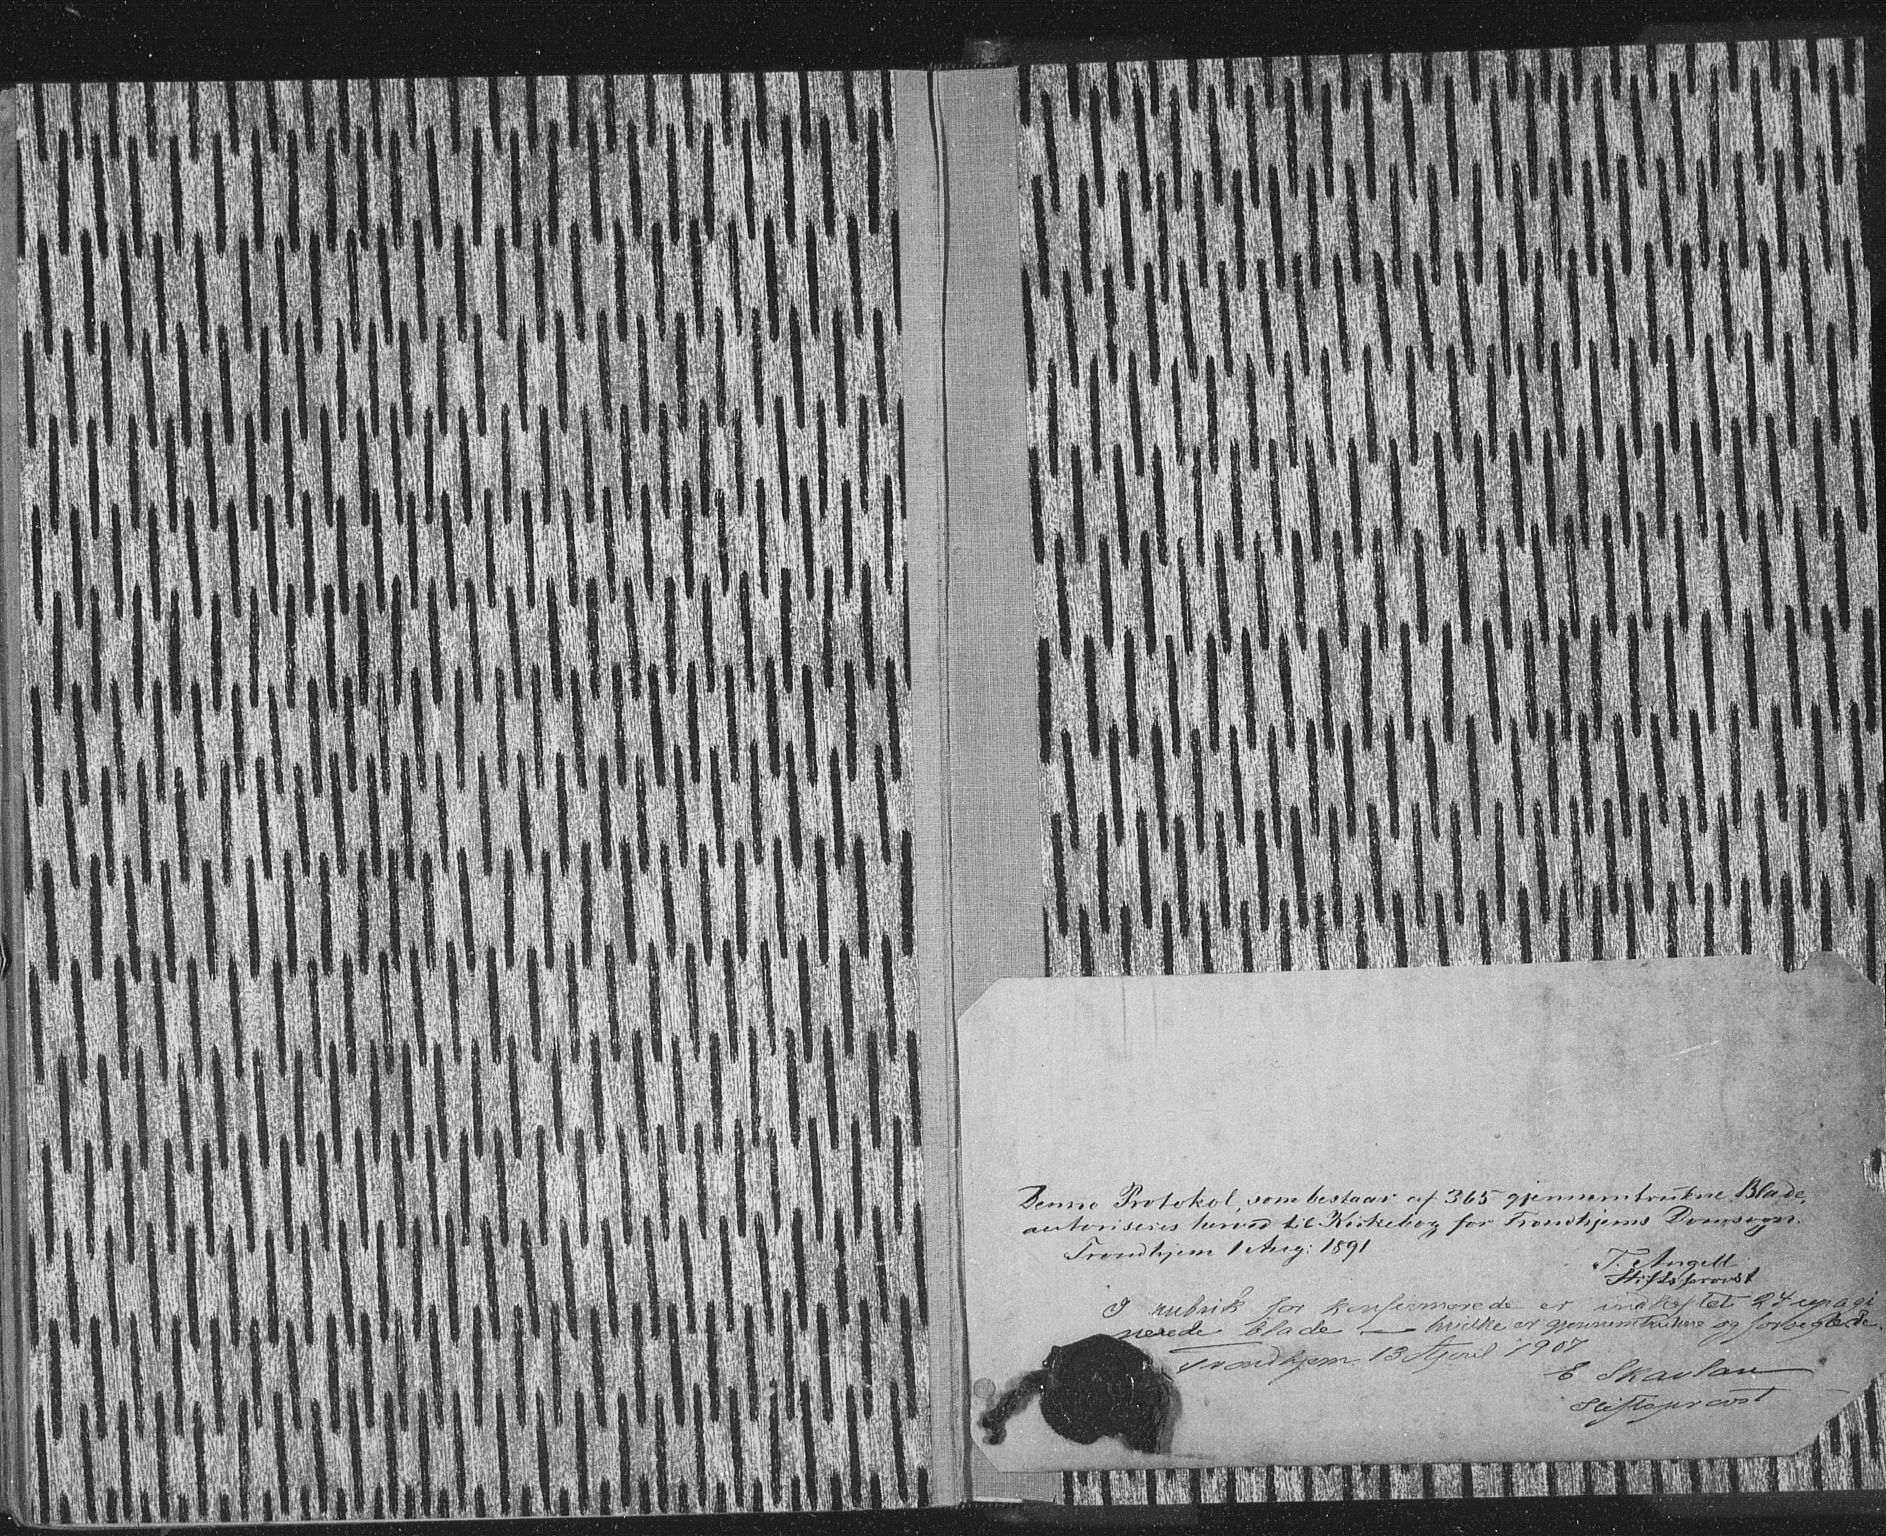 Denne Protokol, som bestaar af 365 gjennemtrukne Blade,
autoriseres herved til Kirkebog for Trondhjems Domsogn.
Trondhjem 1 Aug: 1891
T. Angell
Stiftsprovst
I rubrik for konfirmerede er indheftet 24 upagi
nerede blade — hvilke er gjennemtrukne og forseglede.
Trondhjem 13 April 1907
E Skavlan
Stiftsprovst